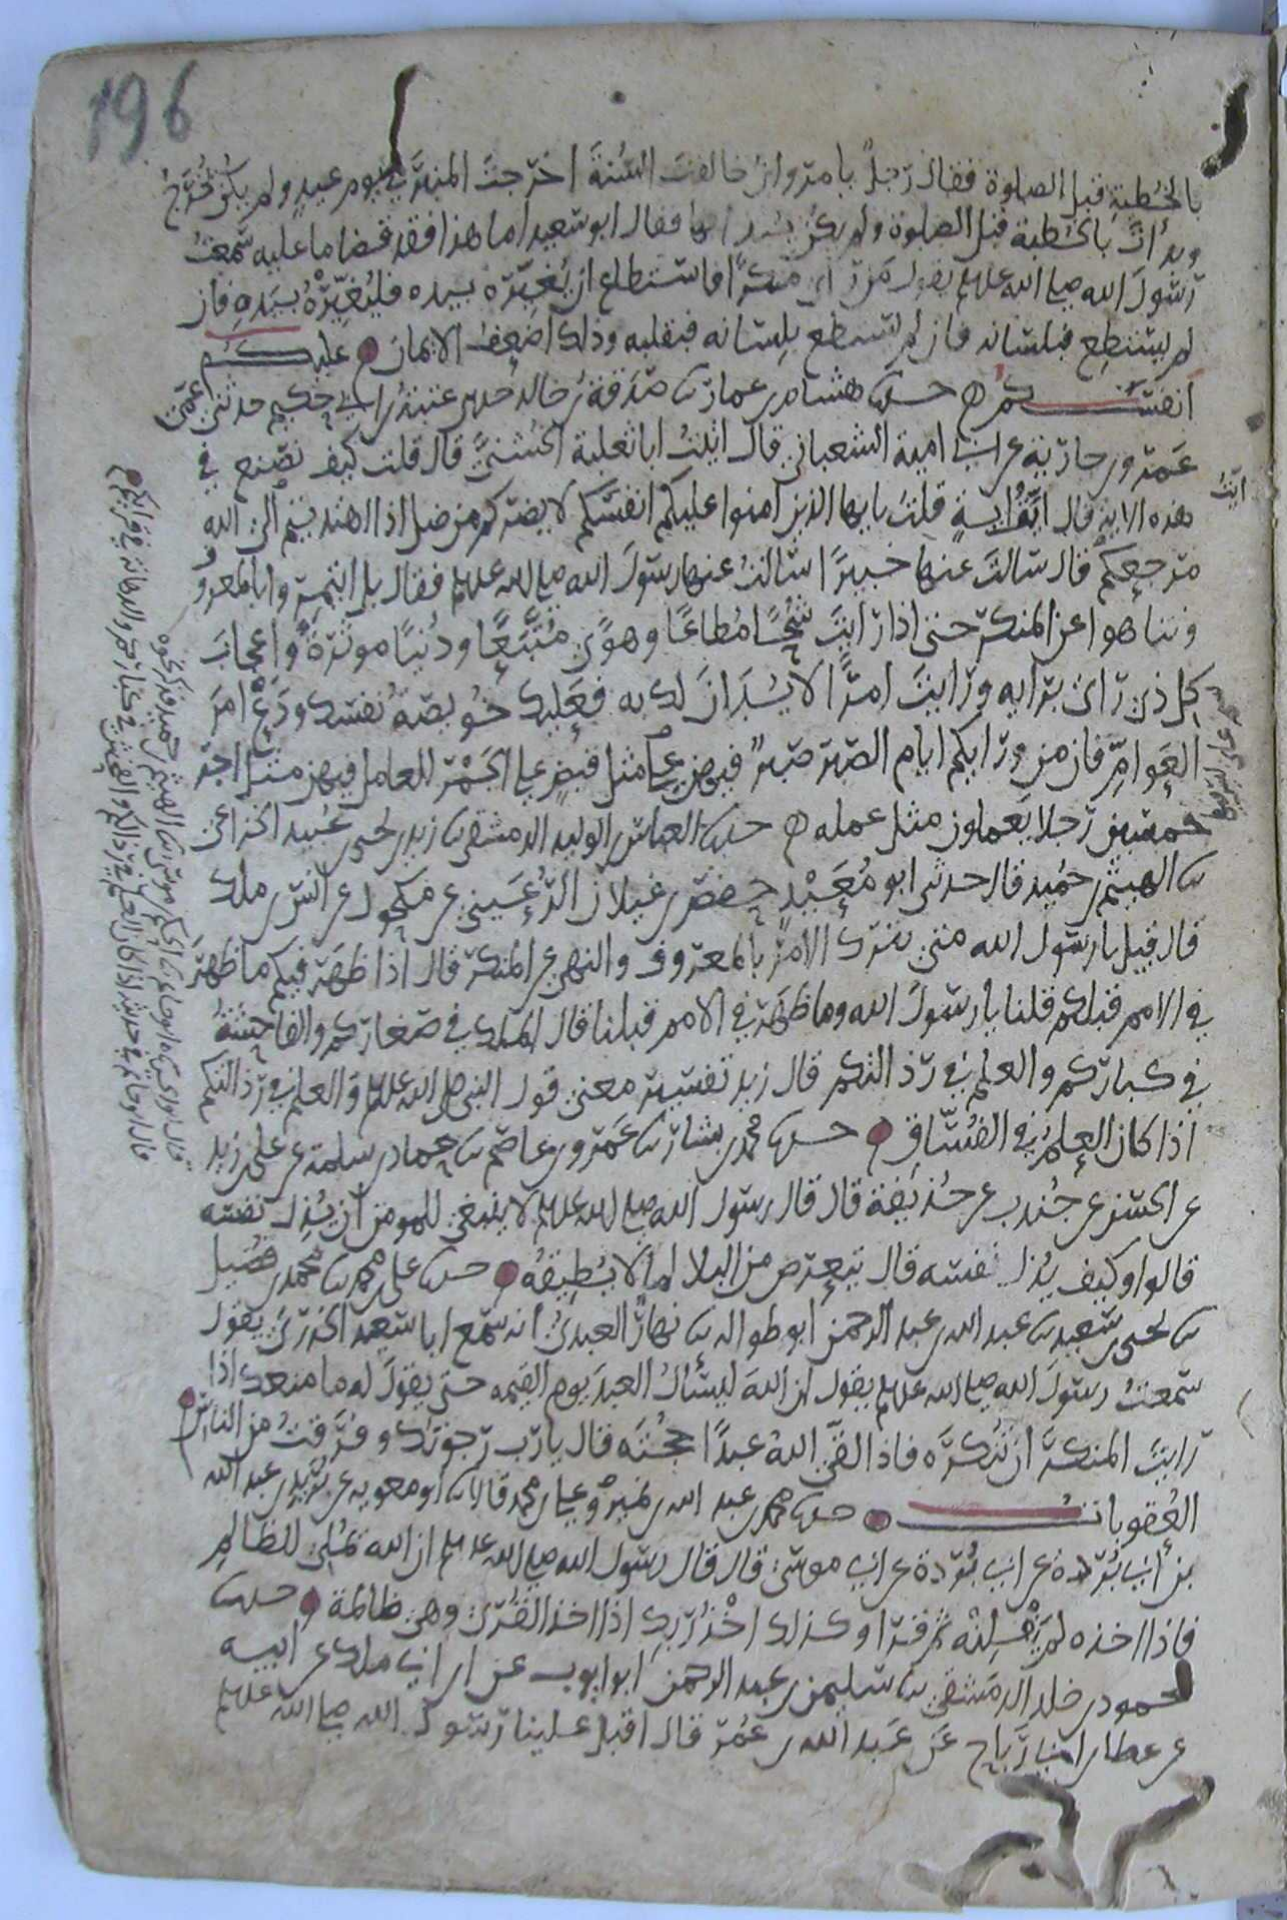 196
بالخُطبةِ قبل الصلوة فقال رَجلٌ يا مروان خالفتَ السُّنةَ اخرجتَ المنبرَ في يوم عيدٍ ولم يكن يُخرَجُ
وبدأتَ بالخُطبة قبل الصلوة ولم يكن يُبدا بها فقال ابو سعيد اما هذا فقد قضا ما عليه سَمعتُ
رَسُولَ الله صلى الله عليه وسلم يقول مَن رَأى مُنكرًا فاستطاع ان يُغيِّرَه بيده فليُغيِّرْهُ بيَدِهِ فان
لم يستطِع فبلسانه فان لم يستطع بلِسَانه فبقلبه وذلك اضعفُ الايمان عليكم
انفسكم حدثنا هشام بن عمار نا صَدَقةُ بن خالد حدثني عتبةُ بن ابي حكيم حدثني عمى
عَمرو بن جارية عن ابي امية الشعباني قال اتيتُ ابا ثعلبة الخُشنيَّ قال قلت كيف نصنع في
هذه الاية قال ايَّةُ ايةٍ قلتُ يا ايها الذين آمنوا عليكم انفسَكم لا يضركم من ضل اذا اهتديتم الى الله
مرجعكم قال سالتَ عنها خبيرًا سالتُ عنها رسولَ الله صلى الله عليه وسلم فقال بل ايتمِروا بالمعروف
وتناهوا عن المنكر حتى اذا رَايتَ شُحًّا مُطاعًا وهوًى مُتَّبَعًا ودُنيًا موثرَةً واعجابَ
كل ذي رَأى برَايه ورَايتَ امرًا لا يَدَانَ لك به فعَليك خُويصّةَ نفسك ودَعْ امرَ
العَوامِّ فان من ورَايكم ايام الصَبر صبرٌ فيهن على مثل قبضٍ على الجَمْر للعامل فيهن مثل اجر
خمسين رَجلا يَعملون مثل عمله حدثنا العباس بن الوليد الدمشقي نا زيد بن يحيى بن عُبيد الخزاعي
نا الهيثم بن حُميد قال حدثني ابو مُعَيْدٍ حفص بن غيلان الرُّعَيني عن مكحول عن انس بن ملك
قال قيل يا رسول الله متى نترك الامر بالمعروف والنهى عن المنكر قال اذا ظهَر فيكم ما ظهرَ
في الامم قبلكم قلنا يا رَسولَ الله وما ظهَر في الامم قبلنا قال المُلك في صغاركم والفاحِشةُ
في كباركم والعلم في رُذالتكم قال زيد تفسير معنى قول النبي صلى الله عليه وسلم والعلم في رُذالتكم
اذا كان العلمُ في الفُسّاقِ حدثنا محمد بن بشار نا عَمرو بن عاصم نا حماد بن سلمة عن علي بن زيد
عن الحسن عن جُندب عن حُذيفة قال قال رسول الله صلى الله عليه وسلم لا ينبغى للمومن ان يُذِل نفسه
قالوا وكيف يُذل نفسه قال يتعرض من البلا لما لا يُطِيقُه حدثنا علي بن محمد نا محمد بن فُضيل
نا يحيى بن سَعيد نا عبد الله بن عبد الرحمن ابو طواله نا نهارُ العبديُّ انه سَمع ابا سَعيد الخدرىَّ يقول
سَمعتُ رسولَ الله صلى الله عليه وسلم يقول ان اللهَ ليسألُ العبدَ يوم القيمه حتى يقولَ له ما منعك اذا
رَايتَ المنكرَ ان تُنكرَه فاذا لقَّى اللهُ عبدًا حُجَّتَه قال يا رَب رَجوتُك وفَرِقتُ من الناس
العُقوبات حدثنا محمد بن عبد الله بن نمير وعلي بن محمد قالا نا ابو معويه عن بُرَيد بن عبد الله
بن أبي بُردة عن ابي بُردة عن ابي موسَى قال قال رسول الله صلى الله عليه وسلم ان الله يُملى للظالمِ
فاذا اخذه لم يُفْلِتْه ثم قرَا وكذلك اخْذُ رَبِكِ اذا اخذ القُرَى وهى ظالمة حدثنا
محمود بن خلد الدمَشقي نا سليمن بن عبد الرحمن ابو ايوب عن ابن ابي ملك عن ابيه
عن عطا بن ابي رَباح عَن عَبد الله بن عُمَر قال اقبل علينا رسول الله صلى الله عليه وسلم